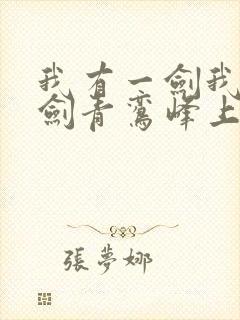 我有一劍我
劍青鸞峰上
張夢娜